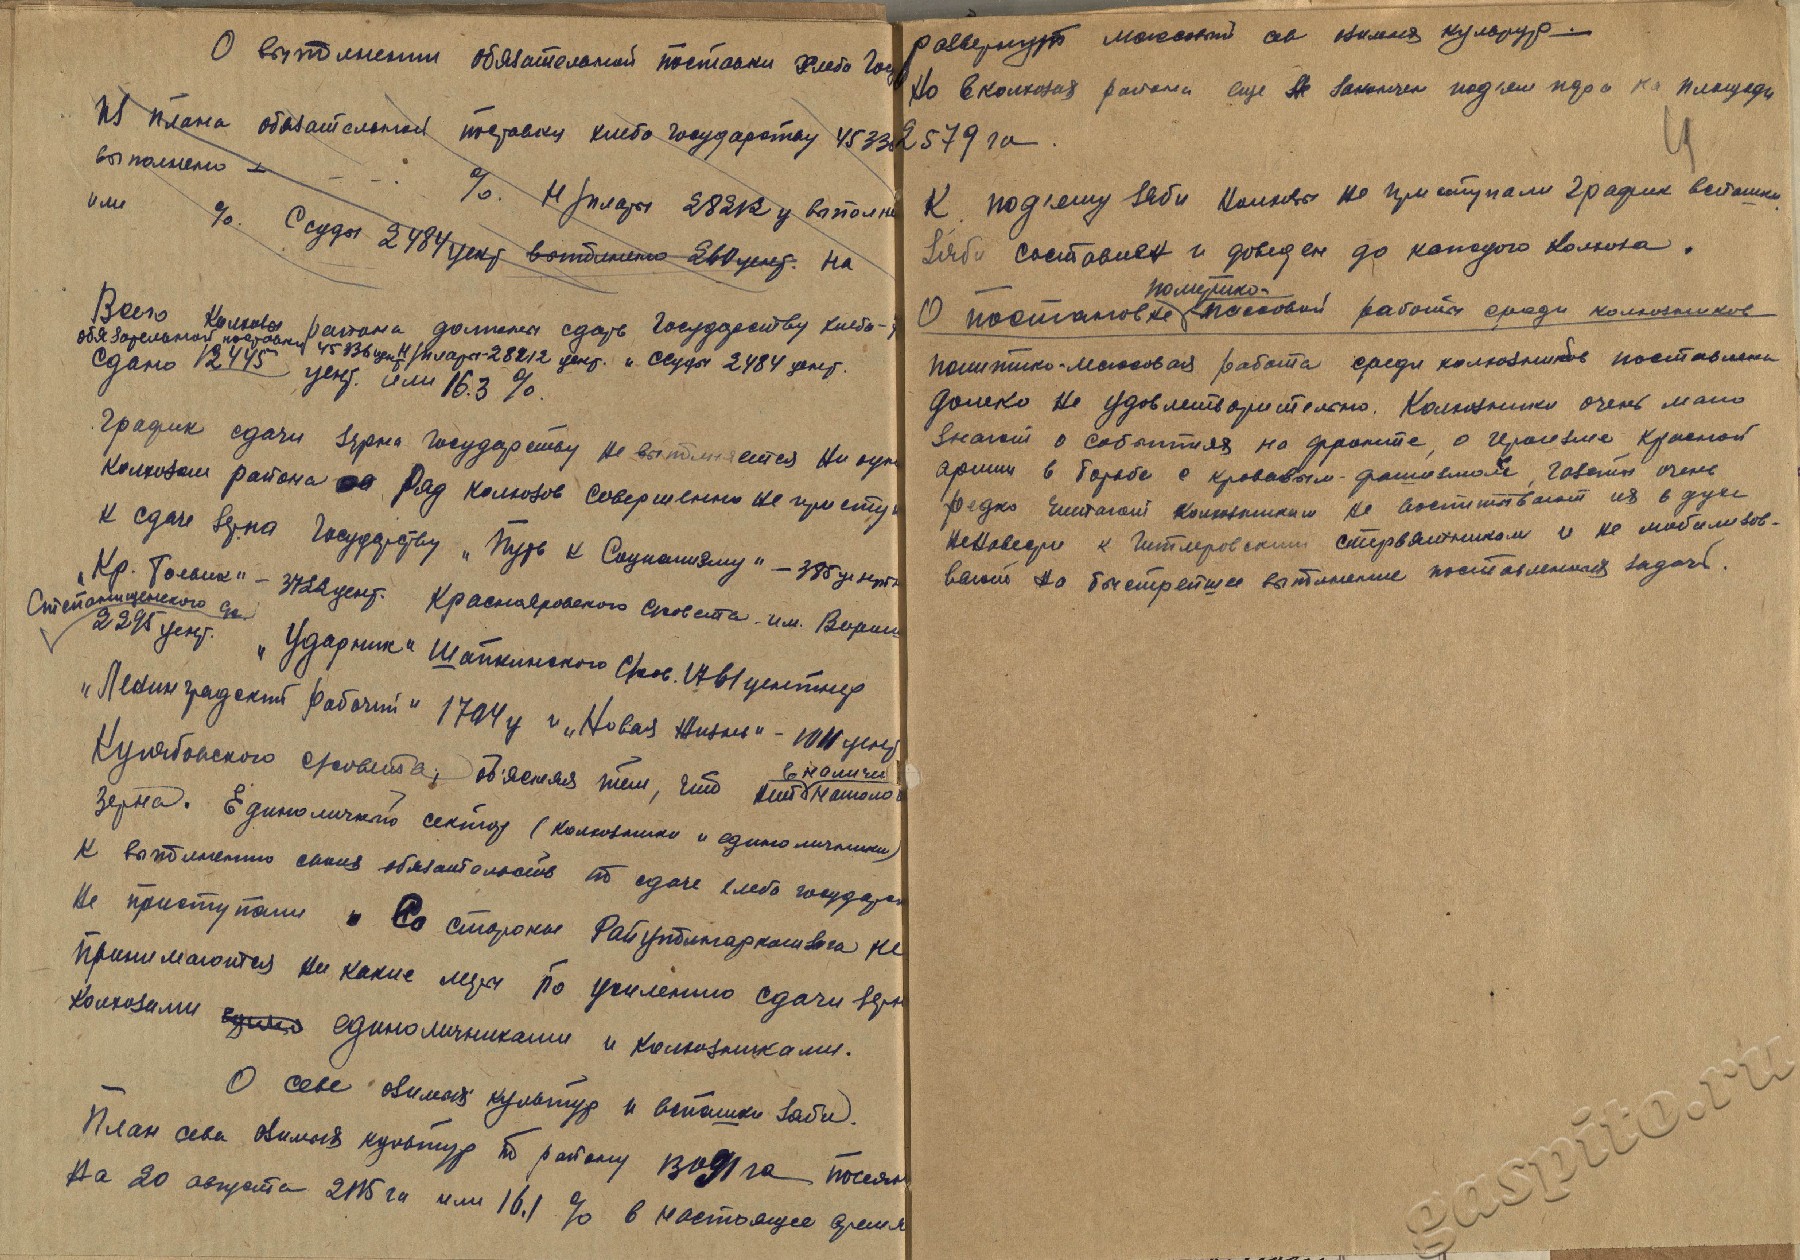 О выполнении обязательной поставки хлеба госу
Из плана обязательной поставки хлеба государству 45336
выполнено - %. Н/платы 28212 ц выполне
или %. Ссуды 2484 цент выполнено 260 цент. на
Всего колхозы района должны сдать государству хлеба-
обязательной поставки 45336 цент Н/платы-28212 цент. и ссуды 2484 цент.
Сдано 12445 цент. или 16.3 %.
График сдачи зерна государству не выполняется ни одним
колхозом района Ряд колхозов совершенно не присту
к сдаче зерна государству „Путь к Социализму" - 385 центн
„Кр. Боевик" - 3722 цент. Красноярского с/совета им. Вороши
Степанищенского с/с
2295 цент. „Ударник" Шапкинского с/сов. 1761 центнер
„Ленинградский рабочий" 1794 ц и „Новая жизнь" - 1011 цент
с/совета, об'ясняя тем, что нет в наличии намоло
зерна. Единоличный сектор (колхозники и единоличники)
к выполнению своих обязательств по сдаче хлеба государст
не приступали. Со стороны Райуполнаркомзага не
принимаются ни какие меры по усилению сдачи зерн
колхозами едино единоличниками и колхозниками.
О севе озимых культур и вспашки зяби.
План сева озимых культур по району га посеян
на 20 августа 2115 га или 16.1 % в настоящее время
4
развернут массовый сев озимых культур.
Но в колхозах района еще не закончен под'ем пара на площади
2579 га.
К под'ему зяби колхозы не приступали график вспашки
зяби составлен и доведен до каждого колхоза.
О постановке политико-массовой работы среди колхозников
Политико-массовая работа среди колхозников поставлена
далеко не удовлетворительно. Колхозники очень мало
знают о событиях на фронте, о героизме Красной
армии в борьбе с кровавым-фашизмом, газеты очень
редко читают колхозникам не воспитывают их в духе
ненависти к гитлеровским стервятникам и не мобилизов-
вают на быстрейшее выполнение поставленных задач.
gaspito.ru